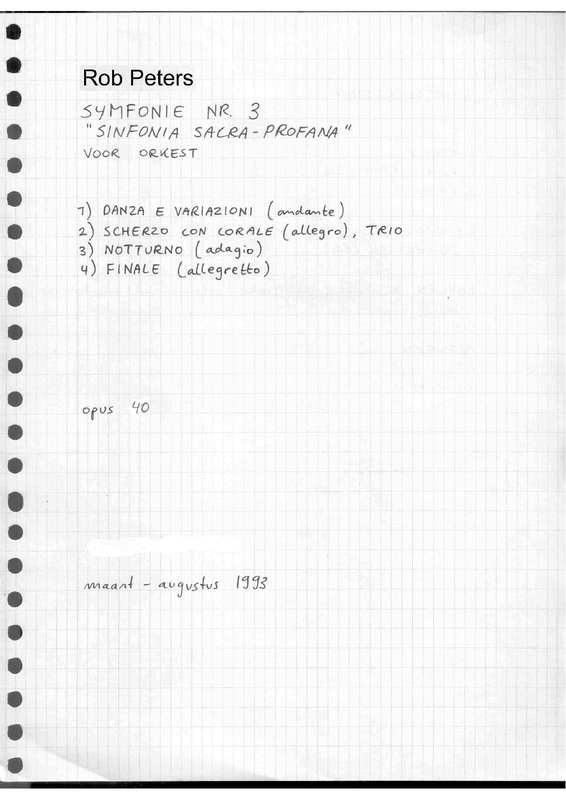 Rob Peters
SYMFONIE NR. 3
"SINFONIA SACRA-PROFANA"
VOOR ORKEST
1) DANZA E VARIAZIONI (andante)
2) SCHERZO CON CORALE (allegro), TRIO
3) NOTTURNO (adagio)
4) FINALE (allegretto)
opus 40
maart - augustus 1993